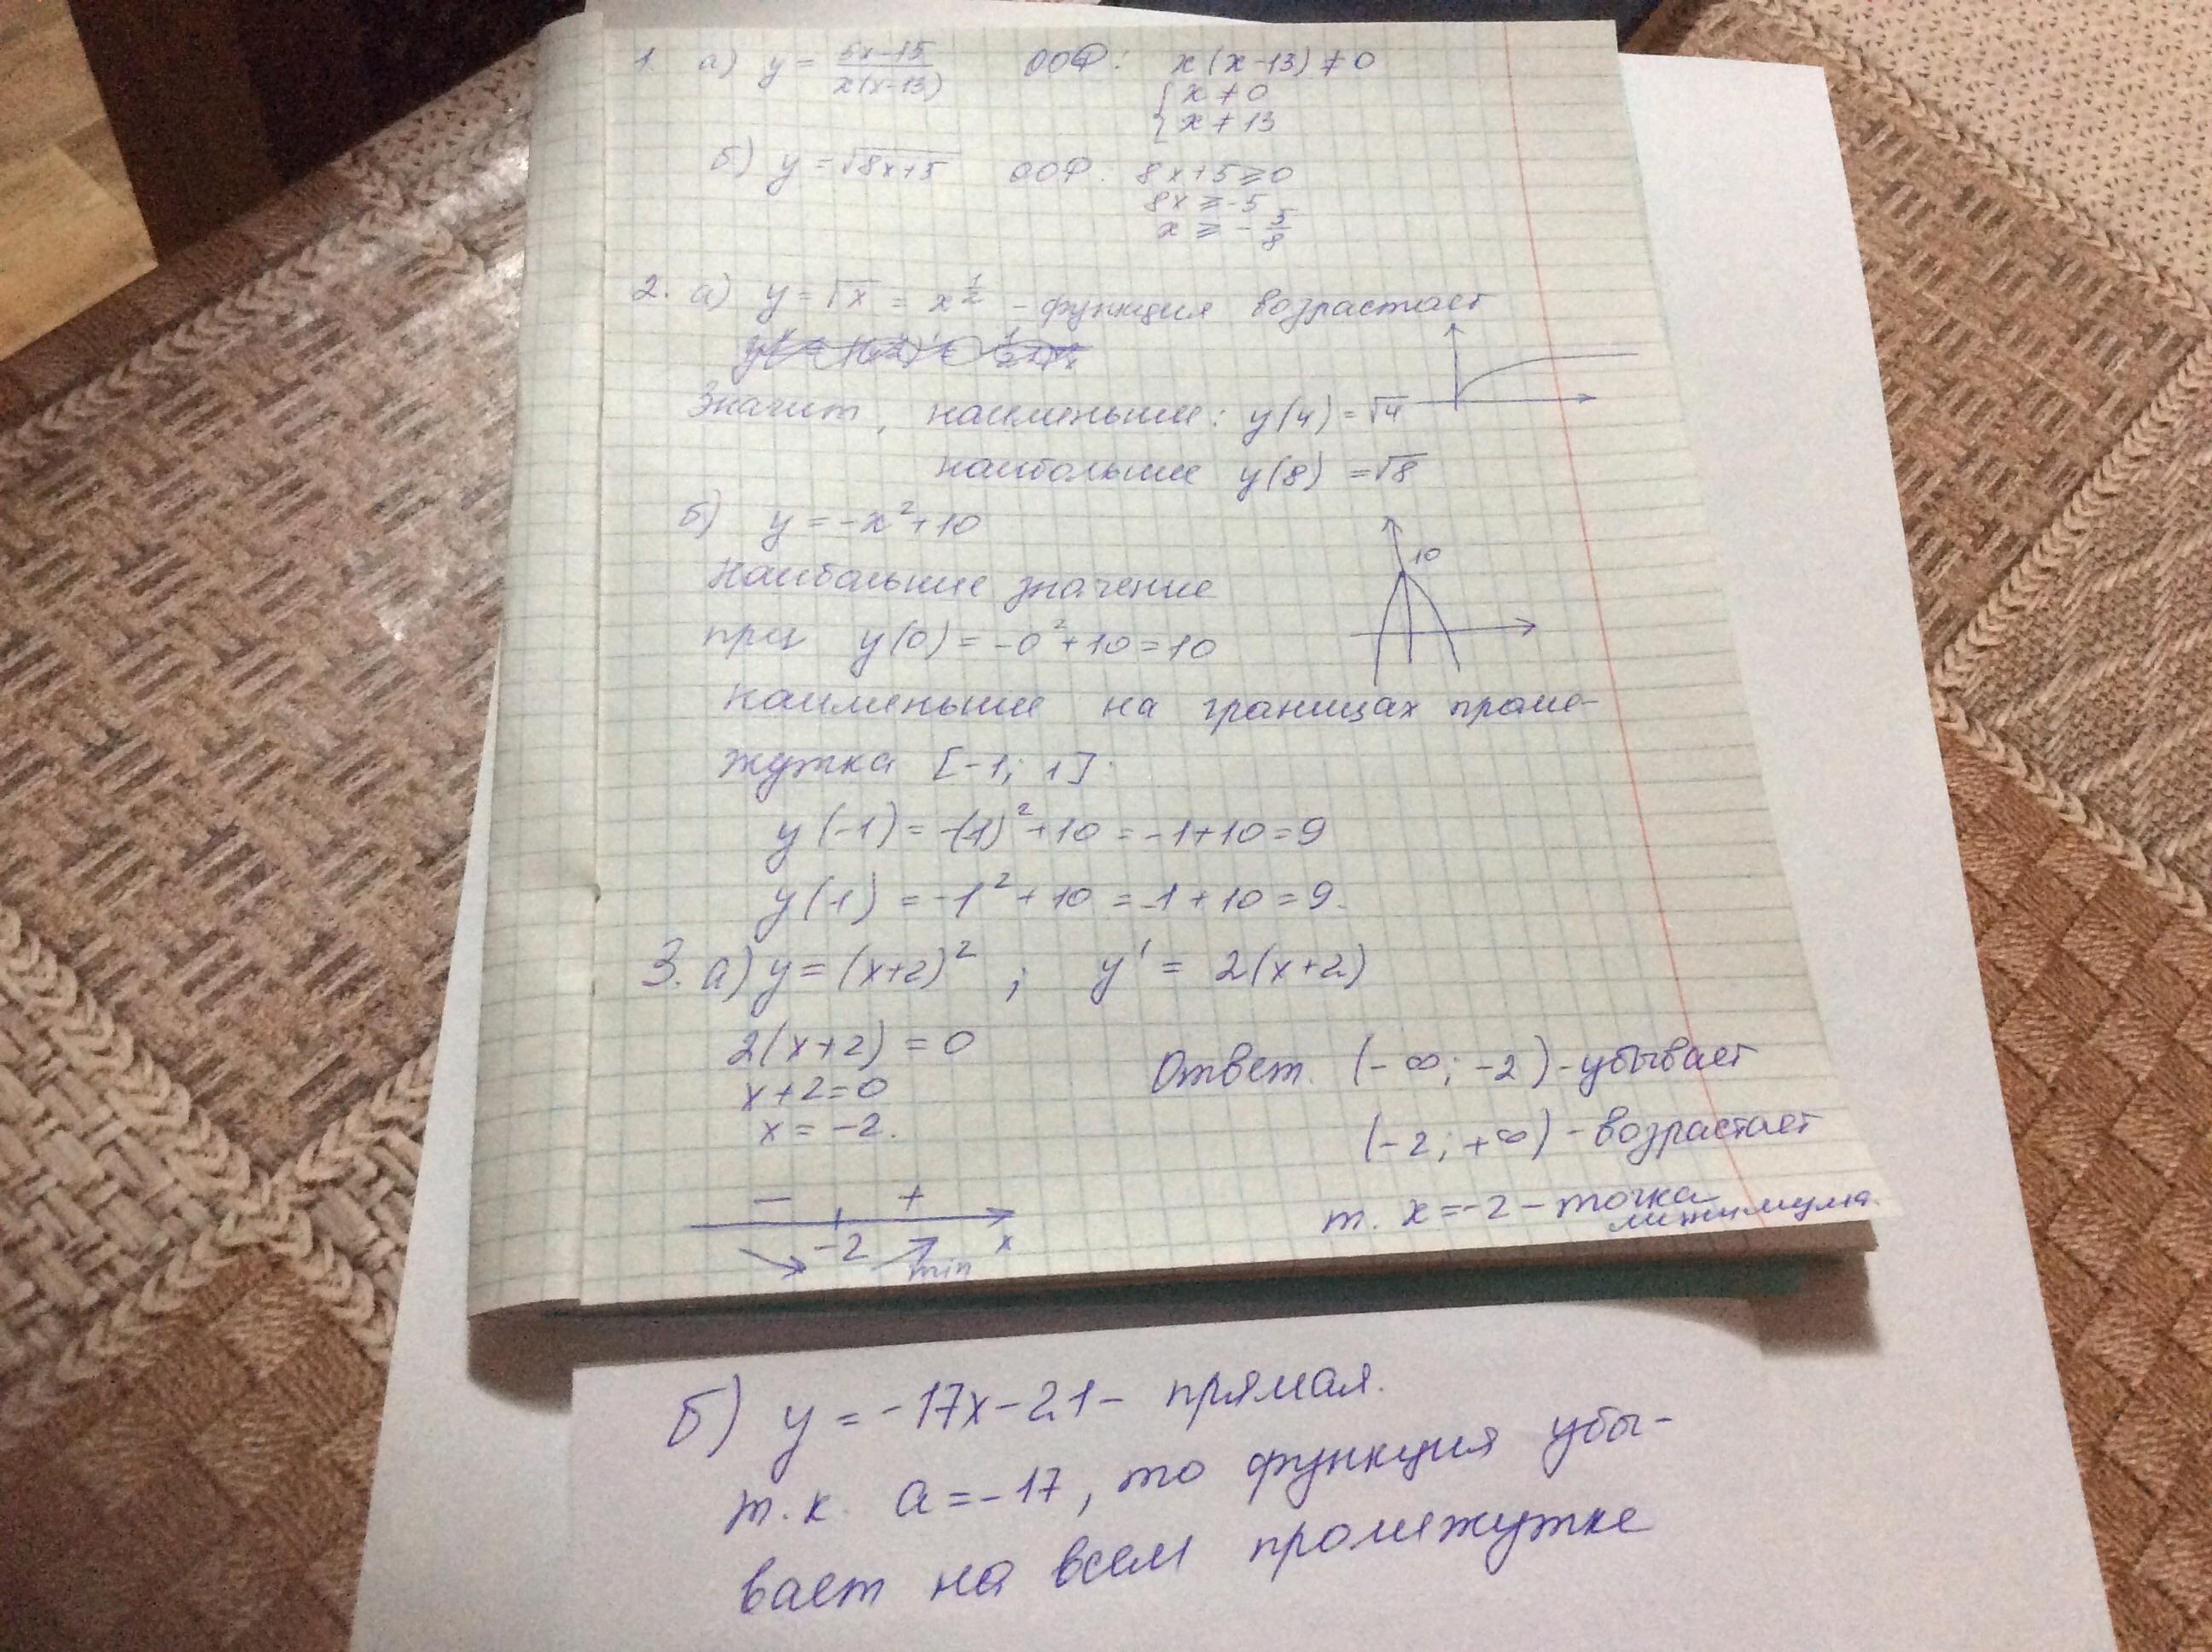 1. а) y = (5x-15)/(x(x-13)) ООФ: x(x-13) ≠ 0
{ x ≠ 0
{ x ≠ 13
б) y = √(8x+5) ООФ: 8x+5 ⩾ 0
8x ⩾ -5
x ⩾ - 5/8
2. а) y = √x = x^(1/2) - функция возрастает
Значит, наименьшее: y(4) = √4
наибольшее y(8) = √8
б) y = -x² + 10
10
Наибольшее значение
при y(0) = -0² + 10 = 10
наименьшее на границах проме-
жутка [-1; 1]:
y(-1) = -(1)² + 10 = -1 + 10 = 9
y(1) = -1² + 10 = -1 + 10 = 9.
3. а) y = (x+2)² ; y' = 2(x+2)
2(x+2) = 0
x+2=0
x = -2.
Ответ. (-∞; -2) - убывает
(-2; +∞) - возрастает
т. x = -2 - точка
минимума.
− +
-2 x
min
б) y = -17x - 21 - прямая.
т.к. a = -17, то функция убы-
вает на всем промежутке